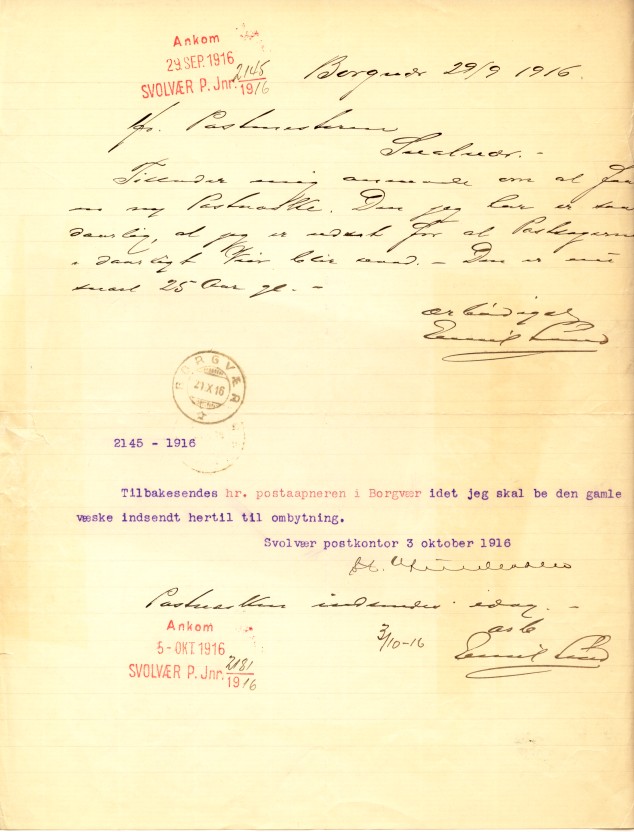 Ankom
29 SEP. 1916
SVOLVÆR P. Jnr. 2145
1916
Borgvær 29/9 1916.
Hr. Postmesteren
Svolvær. -
Tillader mig anmode om at faa
en ny Postvæske. Den jeg har er saa
daarlig, at jeg er udsat for at Postsagerne
i daarligt Veir blir vaad. - Den er nu
snart 25 Aar gl. -
ærbødigst
Emil Lund
BORGVÆR
21 X 16
2145 - 1916
Tilbakesendes hr. postaapneren i Borgvær idet jeg skal be den gamle
væske indsendt hertil til ombytning.
Svolvær postkontor 3 oktober 1916
Postvæsken indsendes idag. -
Ankom
5 - OKT 1916
SVOLVÆR P. Jnr. 2181
1916
3/10-16
ærb
Emil Lund